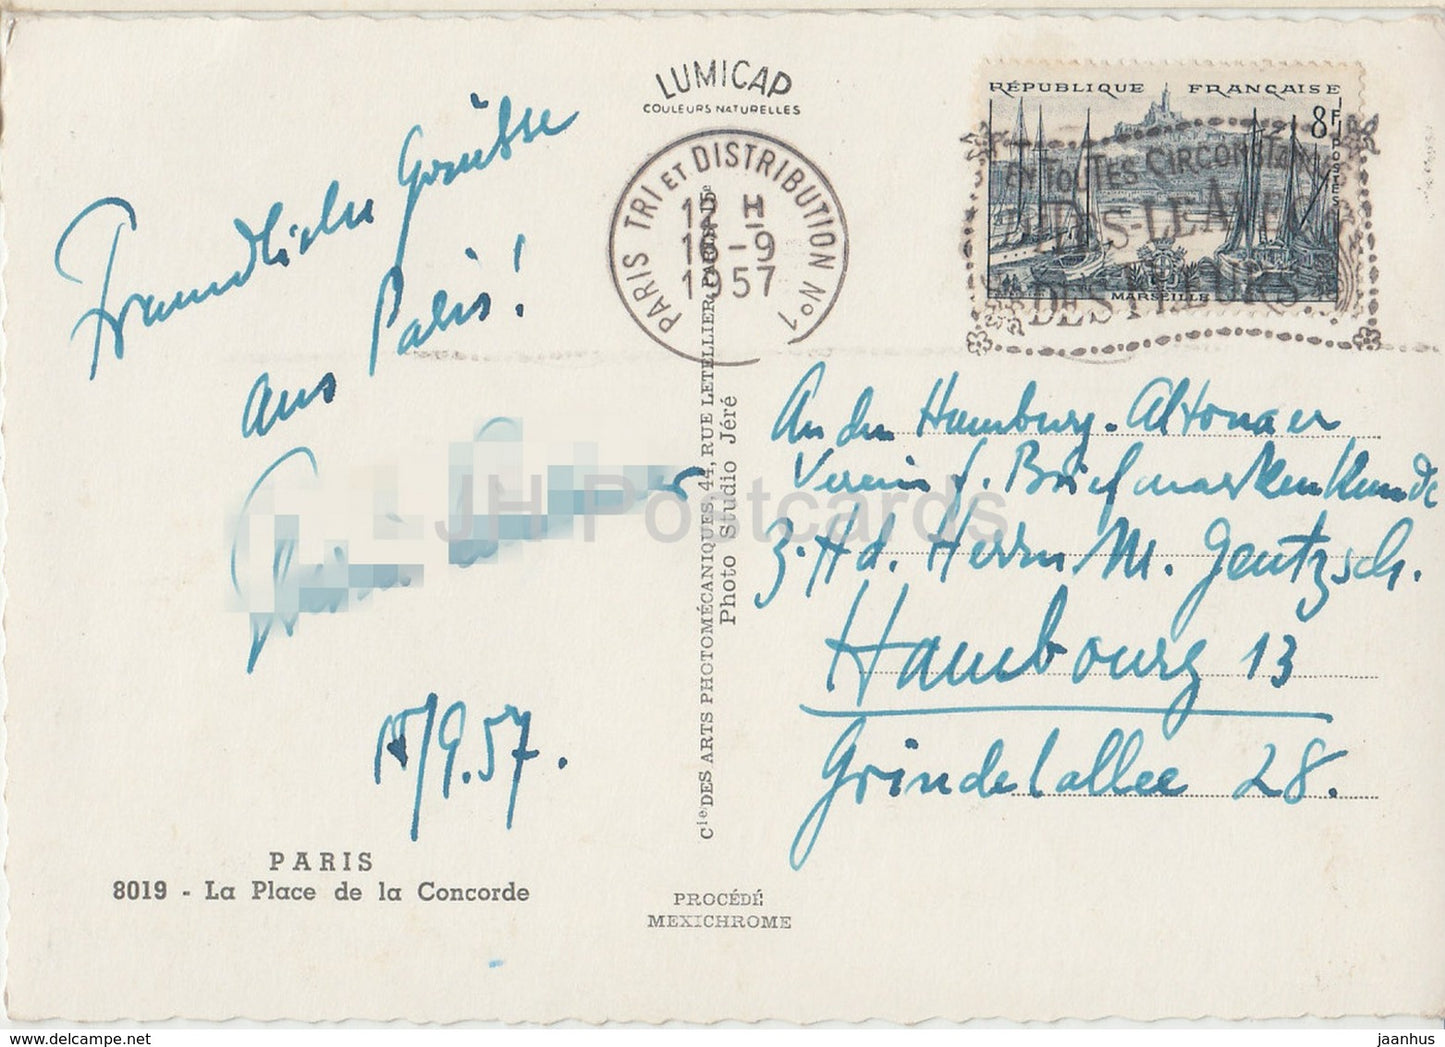 LUMICAP
COULEURS NATURELLES
RÉPUBLIQUE FRANÇAISE
8F
POSTES
MARSEILLE
PARIS TRI ET DISTRIBUTION Nº1
12 H
16-9
1957
EN TOUTES CIRCONSTANCES
DITES-LE AVEC
DES FLEURS
Freundliche Grüsse
aus Paris!
15/9.57.
PARIS
8019 - La Place de la Concorde
Cie DES ARTS PHOTOMÉCANIQUES, 44, RUE LETELLIER, PARIS-15e
Photo Studio Jéré
PROCÉDÉ
MEXICHROME
An den Hamburg-Altonaer
Verein f. Briefmarkenkunde
z. Hd. Herrn M. Gentzsch.
Hambourg 13
Grindelallee 28.
JH Postcards
www.delcampe.net
jaanhus